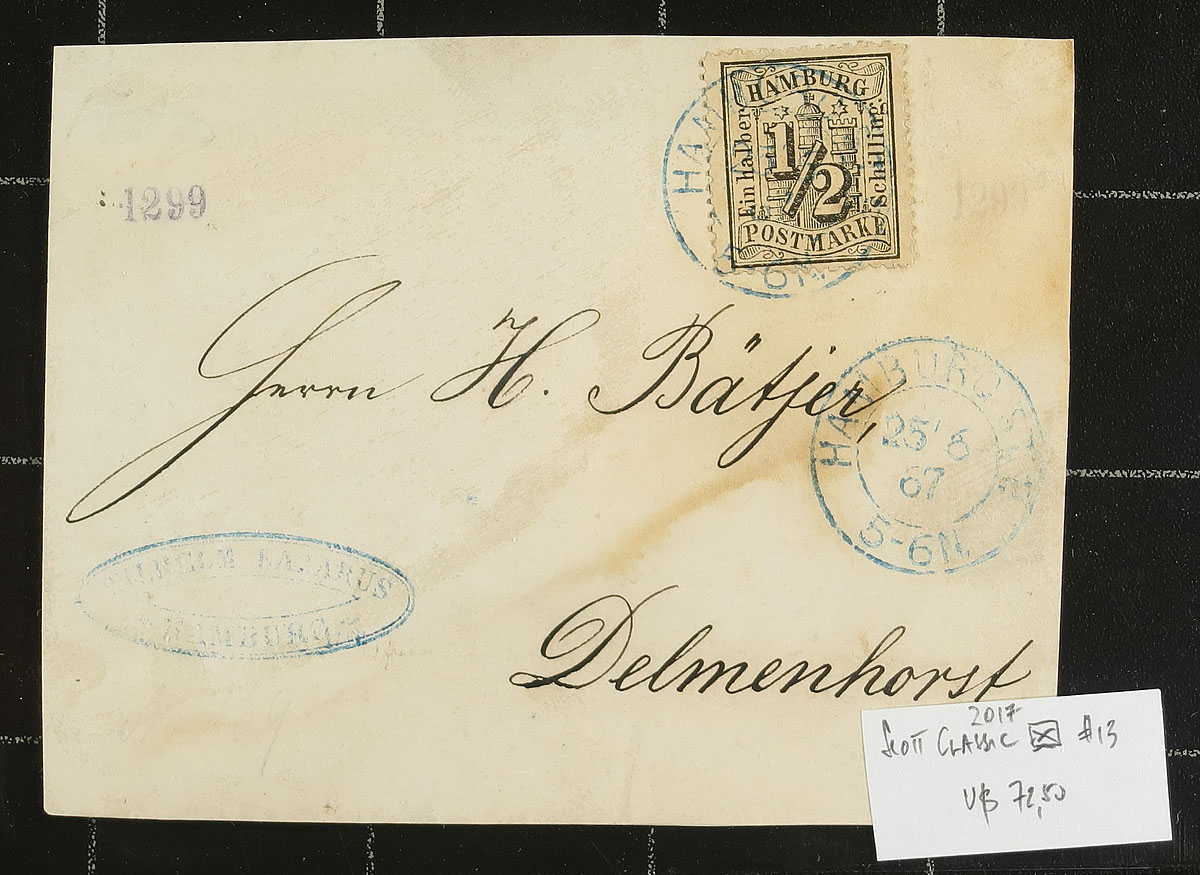 HAMBURG
Ein Halber
1/2
Schilling
POSTMARKE
HA
5-6N.
1299
1299
Herrn H. Bätjer,
HAMBURG ST.P.
25 6
67
5-6N.
WILHELM LAZARUS
HAMBURG
Delmenhorst
2017
Scott Classic #13
U$ 72,50